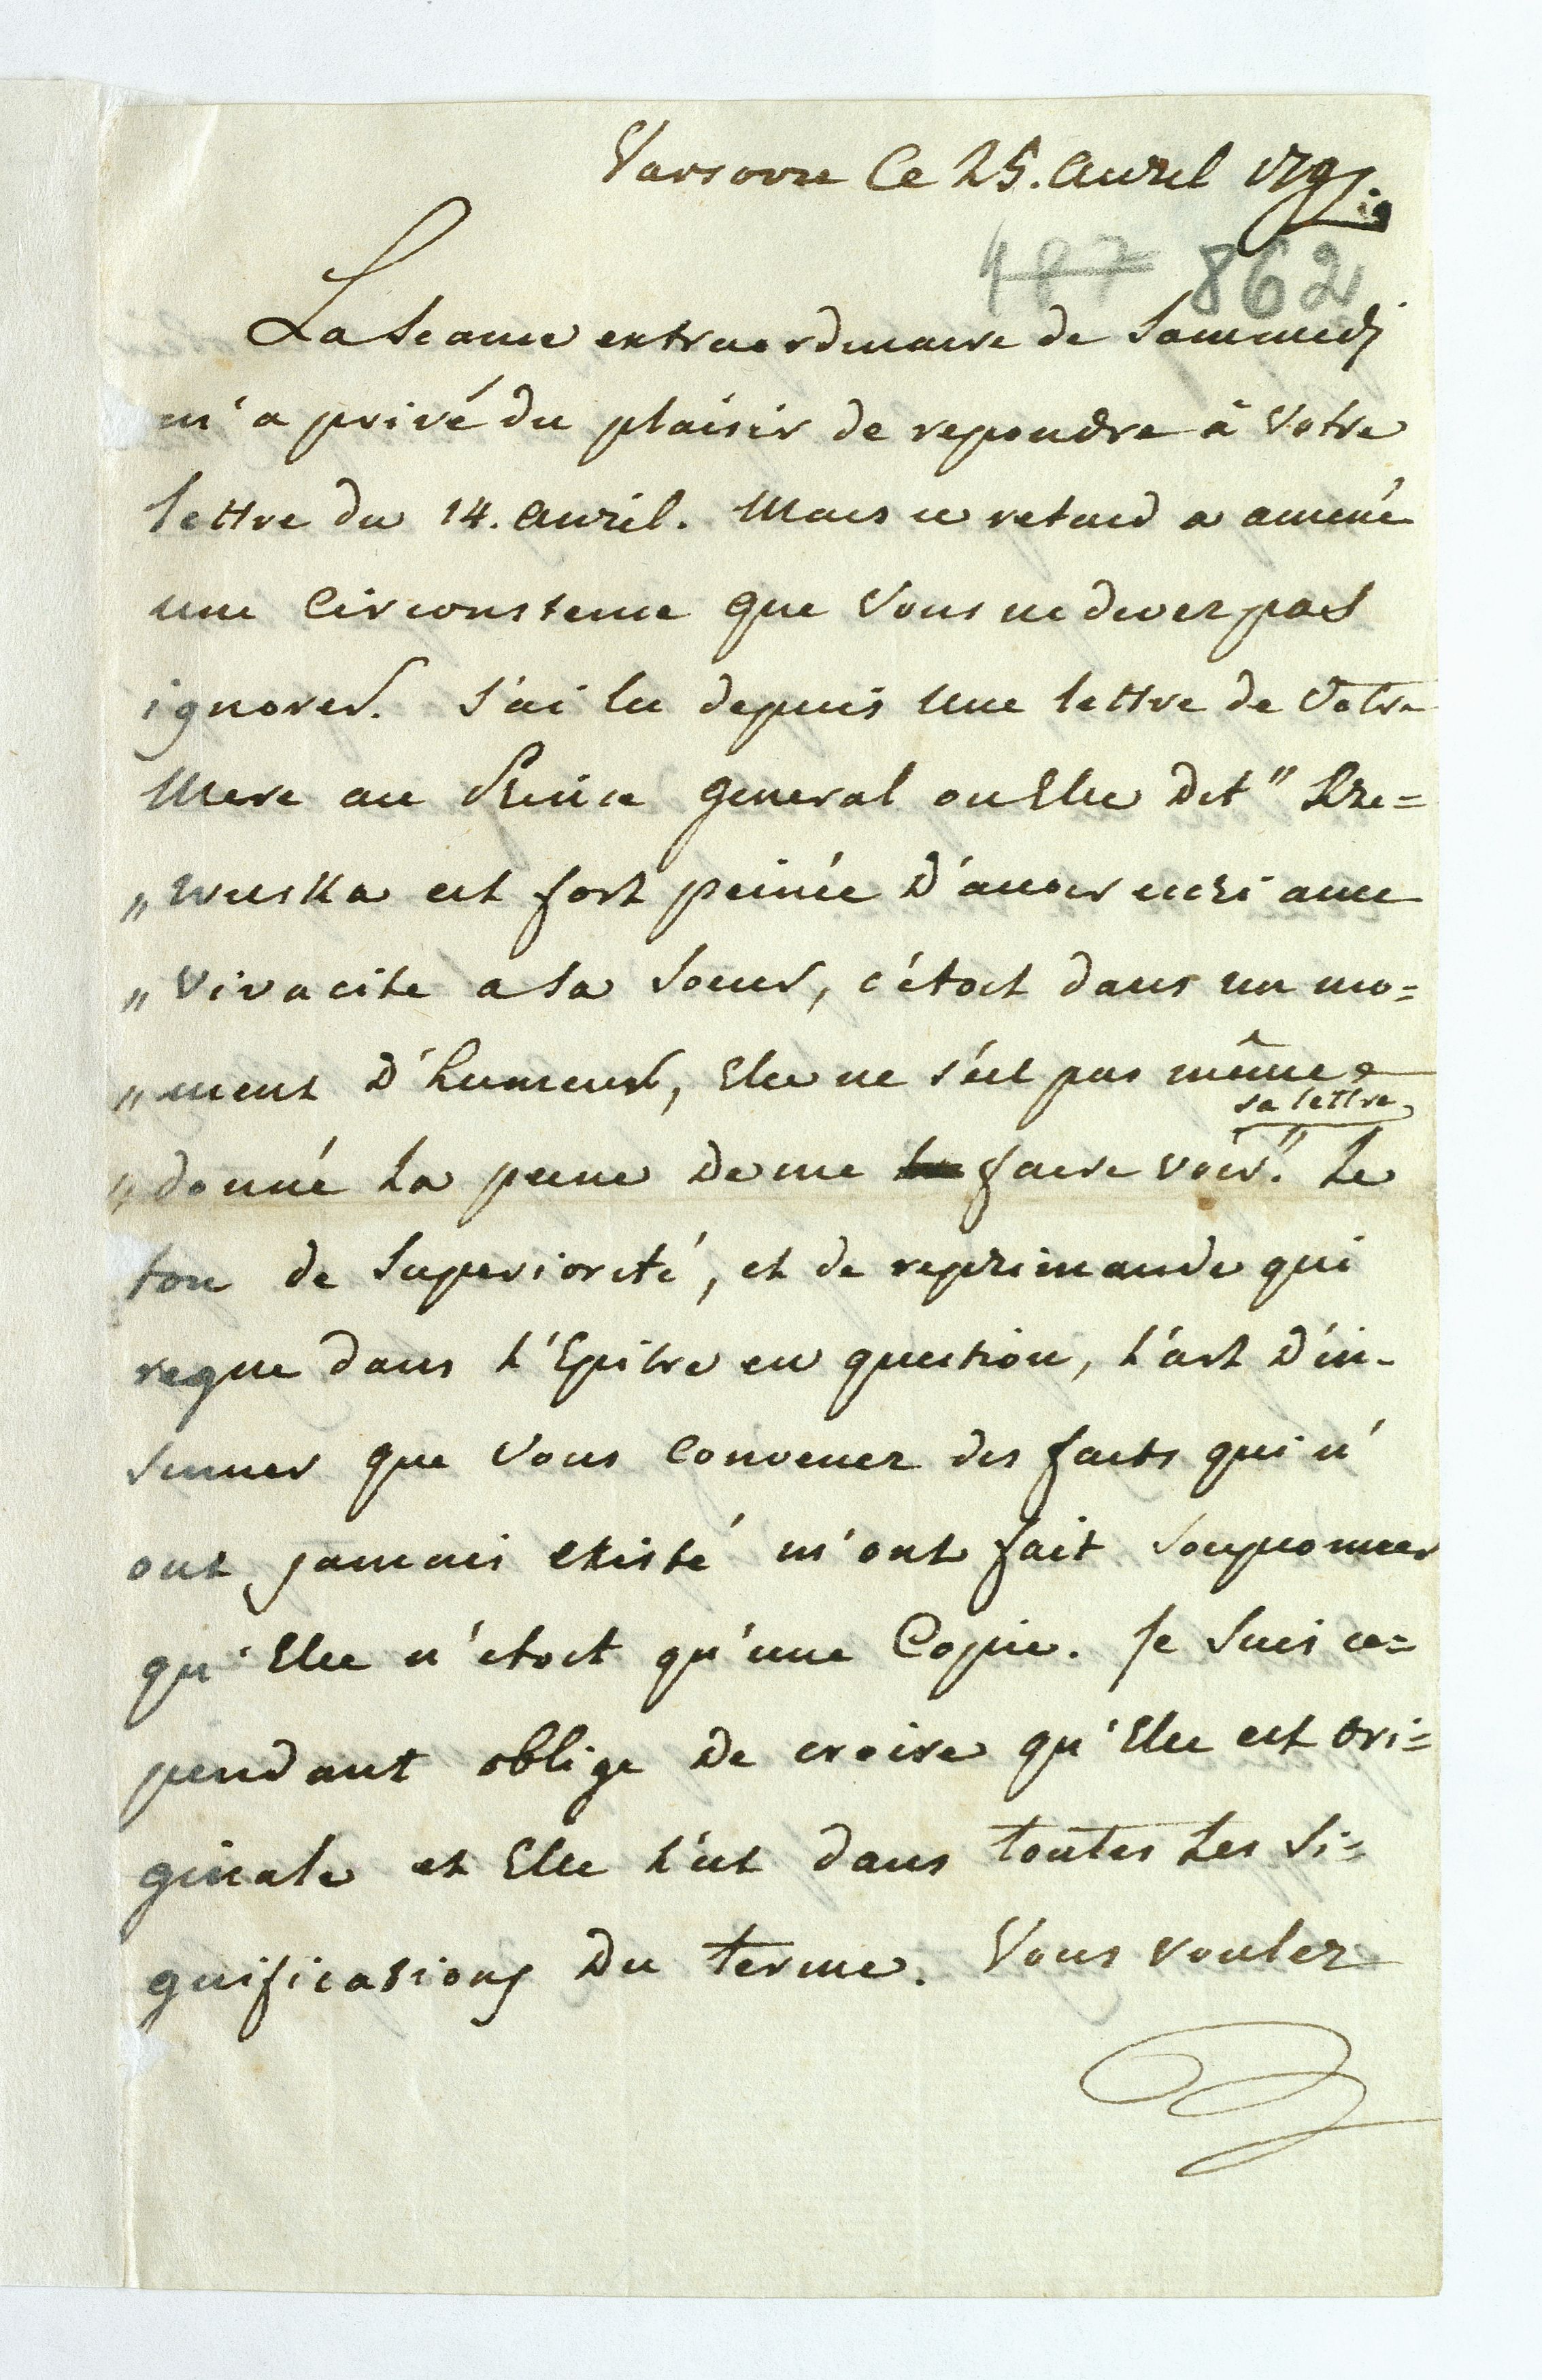 Varsovie Ce 25. Avril 1791.
487 862
La Seance extraordinaire de Sammedi
m'a privé du plaisir de repondre à Votre
lettre du 14. Avril. Mais ce retard a amené
une Circonstence que Vous ne devez pas
ignorer. J'ai lu depuis Une lettre de Votre
Mere au Prince General ou Elle Dit " Rze=
„ wuska est fort peinée D'avoir ecri avec
„ Vivacite a Sa Soeur, c'étoit dans un mo=
„ ment D'humeur, Elle ne s'est pas même
sa lettre
„ donné La peine De me la faire voir." Le
ton de Superiorité, et de reprimande qui
regne dans L'Epitre en question, L'art D'in-
sinuer que Vous Convenez des faits qui n'
ont jamais existé m'ont fait Soupconner
qu'Elle n'étoit qu'une Copie. Je Suis ce=
pendant oblige De croire qu'Elle est Ori=
ginale et Elle L'est dans toutes Les Si=
gnifications Du terme. Vous voulez